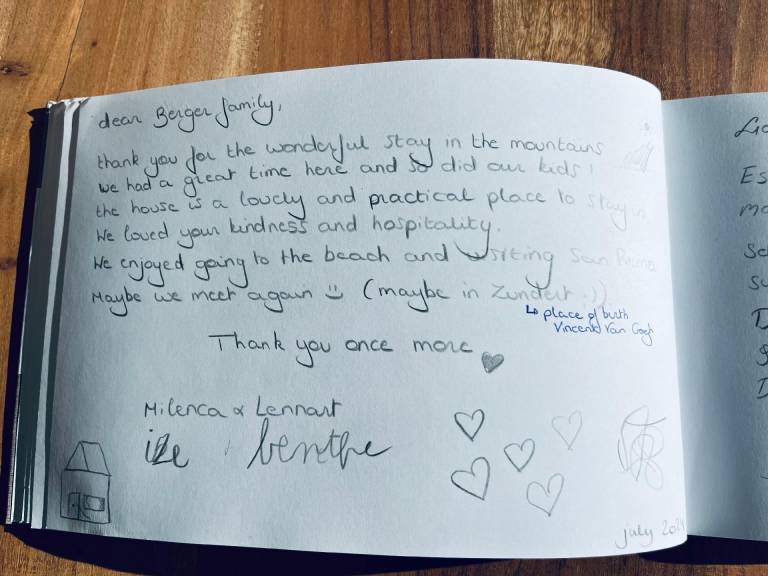 dear Berger family,
thank you for the wonderful stay in the mountains
we had a great time here and so did our kids!
the house is a lovely and practical place to stay in.
We loved your kindness and hospitality.
We enjoyed going to the beach and visiting San Remo
Maybe we meet again :) (maybe in Zundert :))
↳ place of birth
Vincent Van Gogh
Thank you once more ♥
Milenca & Lennart
benthe
july 2024
Es